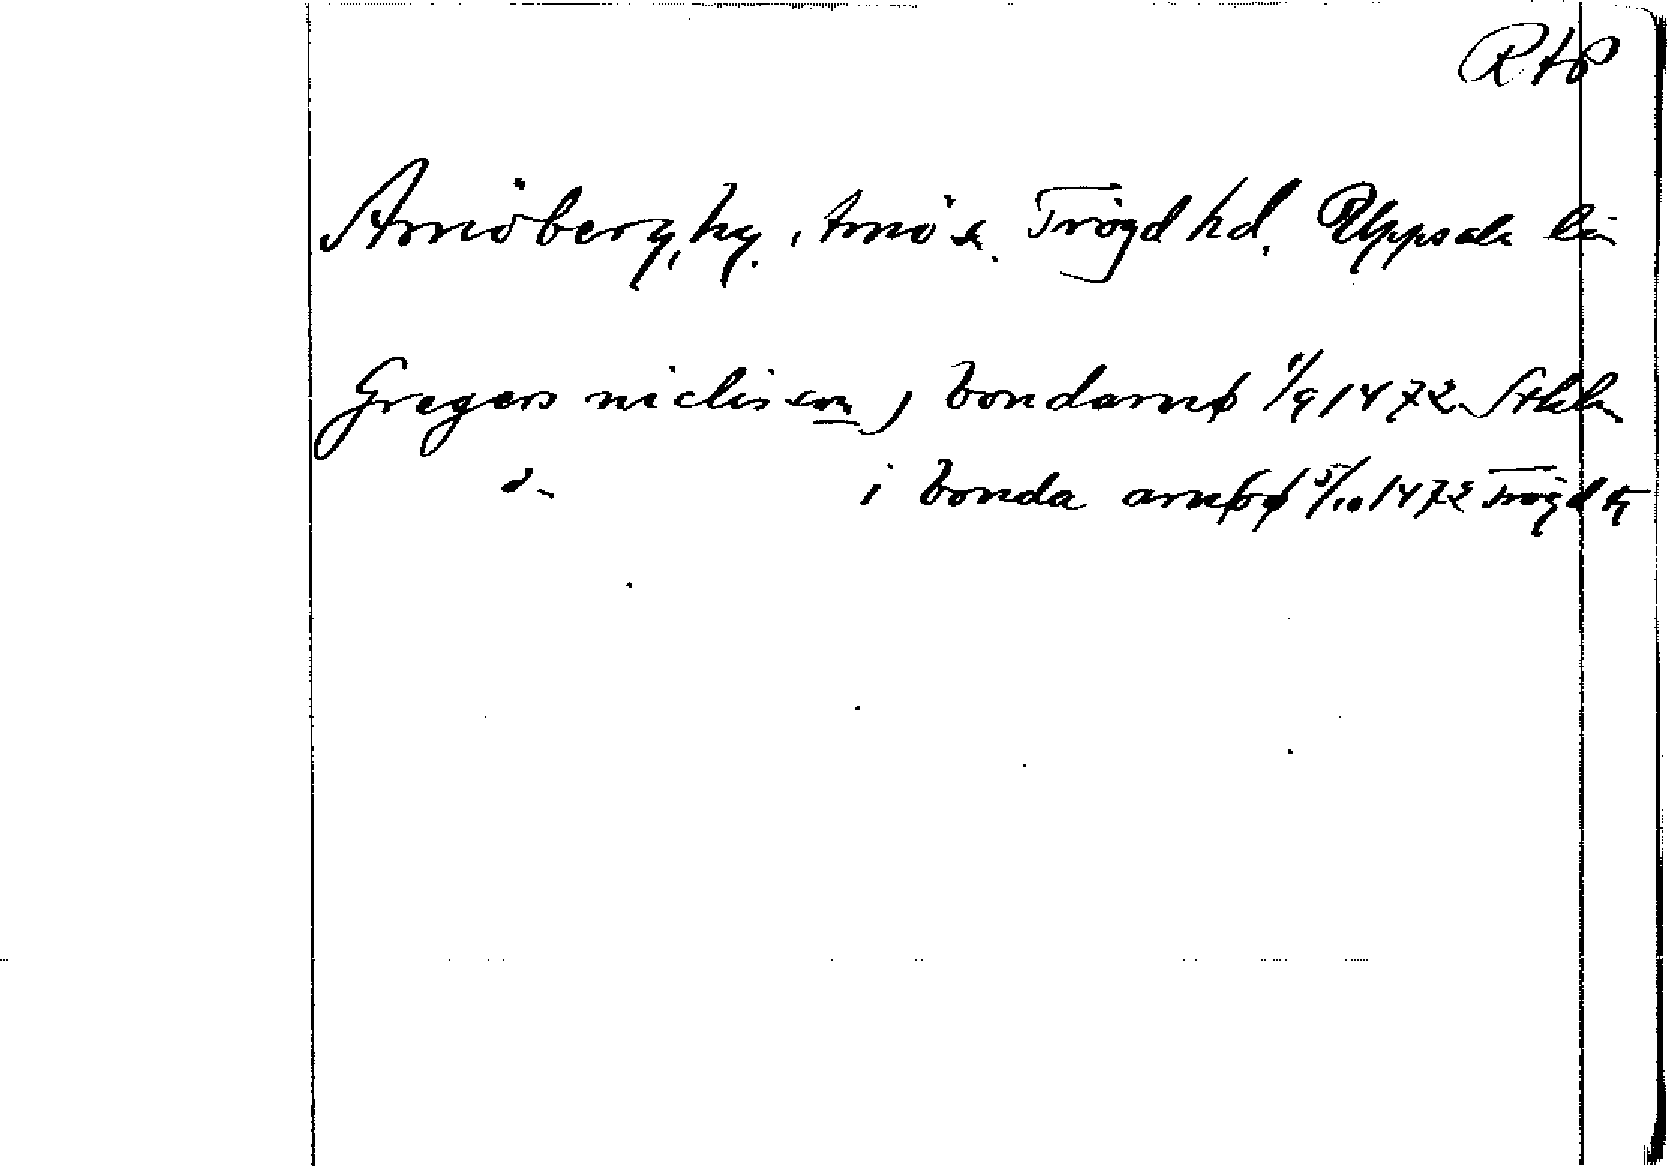 RAP
Arnöberg, hg. Arnö sn. Trögd hd. Uppsala län
Gregers niclisson j bondarnø 1/9 1472 Sthlm
d:o i bonda arnbø 5/10 1472 Trögd